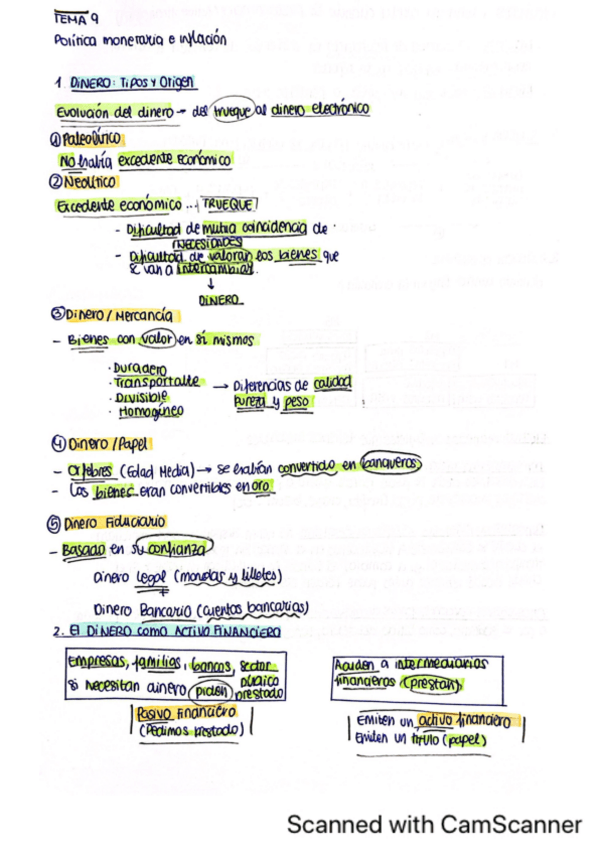 TEMA 9
Política monetaria e inflación
1. DINERO: Tipos y Origen
Evolución del dinero → del trueque al dinero electrónico
① Paleolítico
No había excedente económico
② Neolítico
Excedente económico ..→ TRUEQUE
- Dificultad de mutua coincidencia de
NECESIDADES
- Dificultad de valorar los bienes que
se van a intercambiar.
↓
DINERO
③ Dinero / Mercancía
- Bienes con valor en sí mismos
· Duradero
· Transportable → Diferencias de calidad
· Divisible pureza y peso
· Homogéneo
④ Dinero / Papel
- Orfebres (Edad Media) → se habían convertido en banqueros
- Los bienes eran convertibles en oro
⑤ Dinero Fiduciario
- Basado en su confianza
Dinero Legal (monedas y billetes)
+
Dinero Bancario (cuentas bancarias)
2. El DINERO como ACTIVO FINANCIERO
Empresas, familias, bancos, sector
público
si necesitan dinero piden prestado
Pasivo financiero
(Pedimos prestado)
Acuden a intermediarios
financieros (prestan)
Emiten un activo financiero
Emiten un título (papel)
Scanned with CamScanner